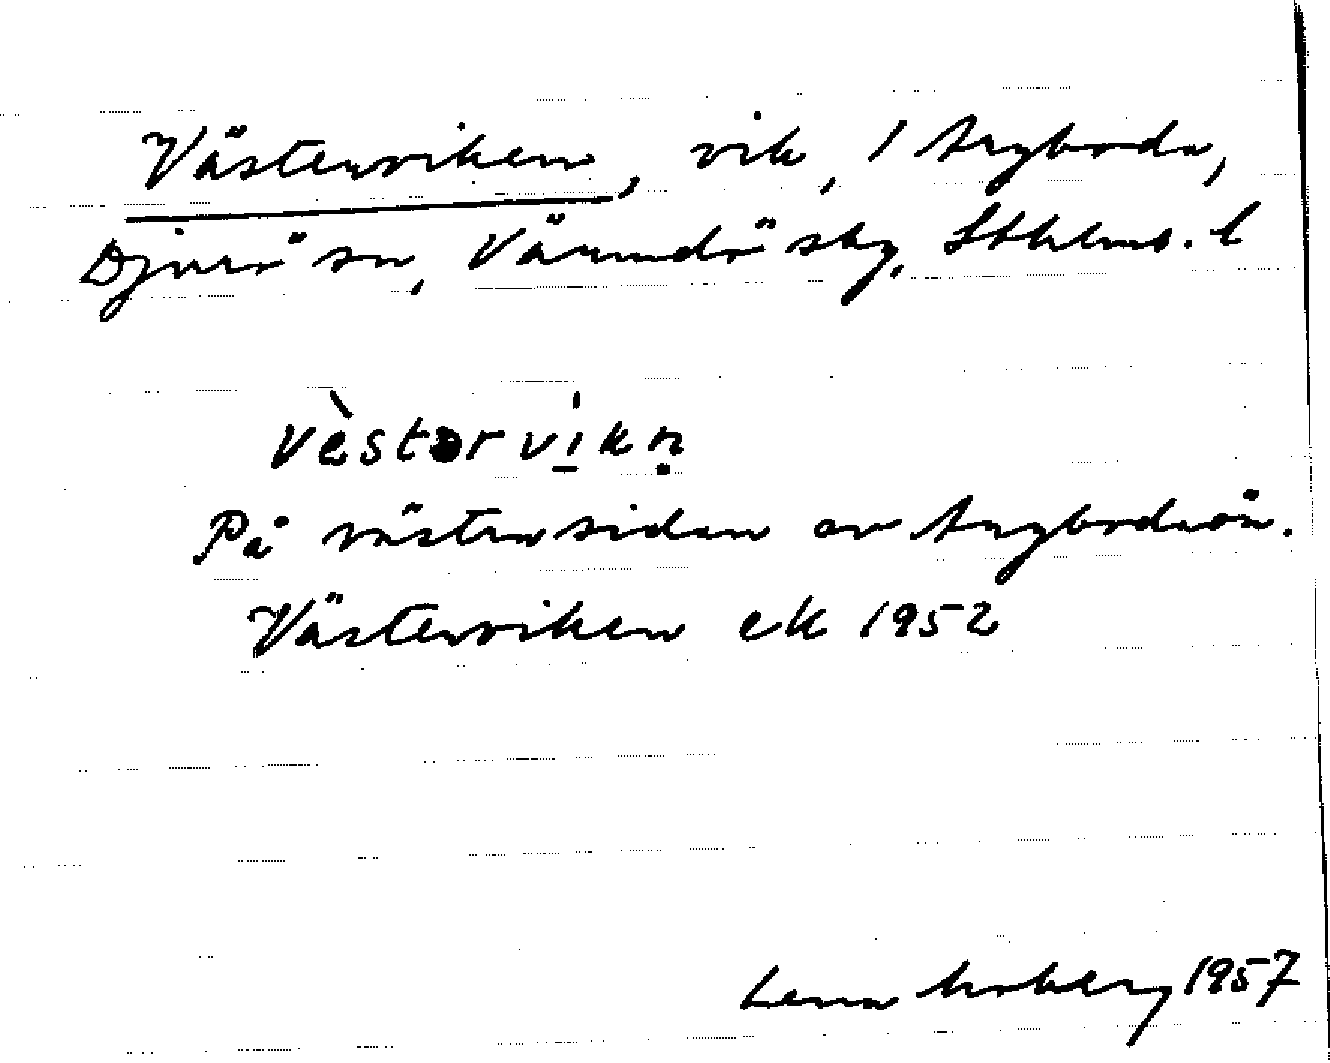 Västerviken, vik, 1 Aggboda,
Djurö sn, Värmdö skg, Sthlms. l
vèstərvi̱kṇ
På västersidan av Aggbodaön.
Västerviken ek 1952
Lena Moberg 1957